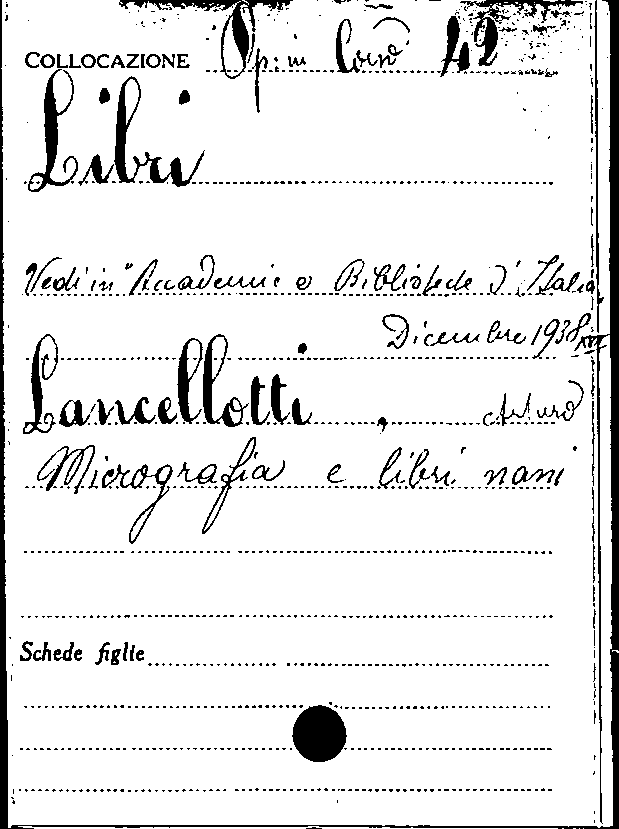 COLLOCAZIONE Op: in Cons 42
Libri
Vedi in "Accademie e Biblioteche d'Italia"
Dicembre 1938 XVII
Lancellotti, Arturo
Micrografia e libri nani
Schede figlie